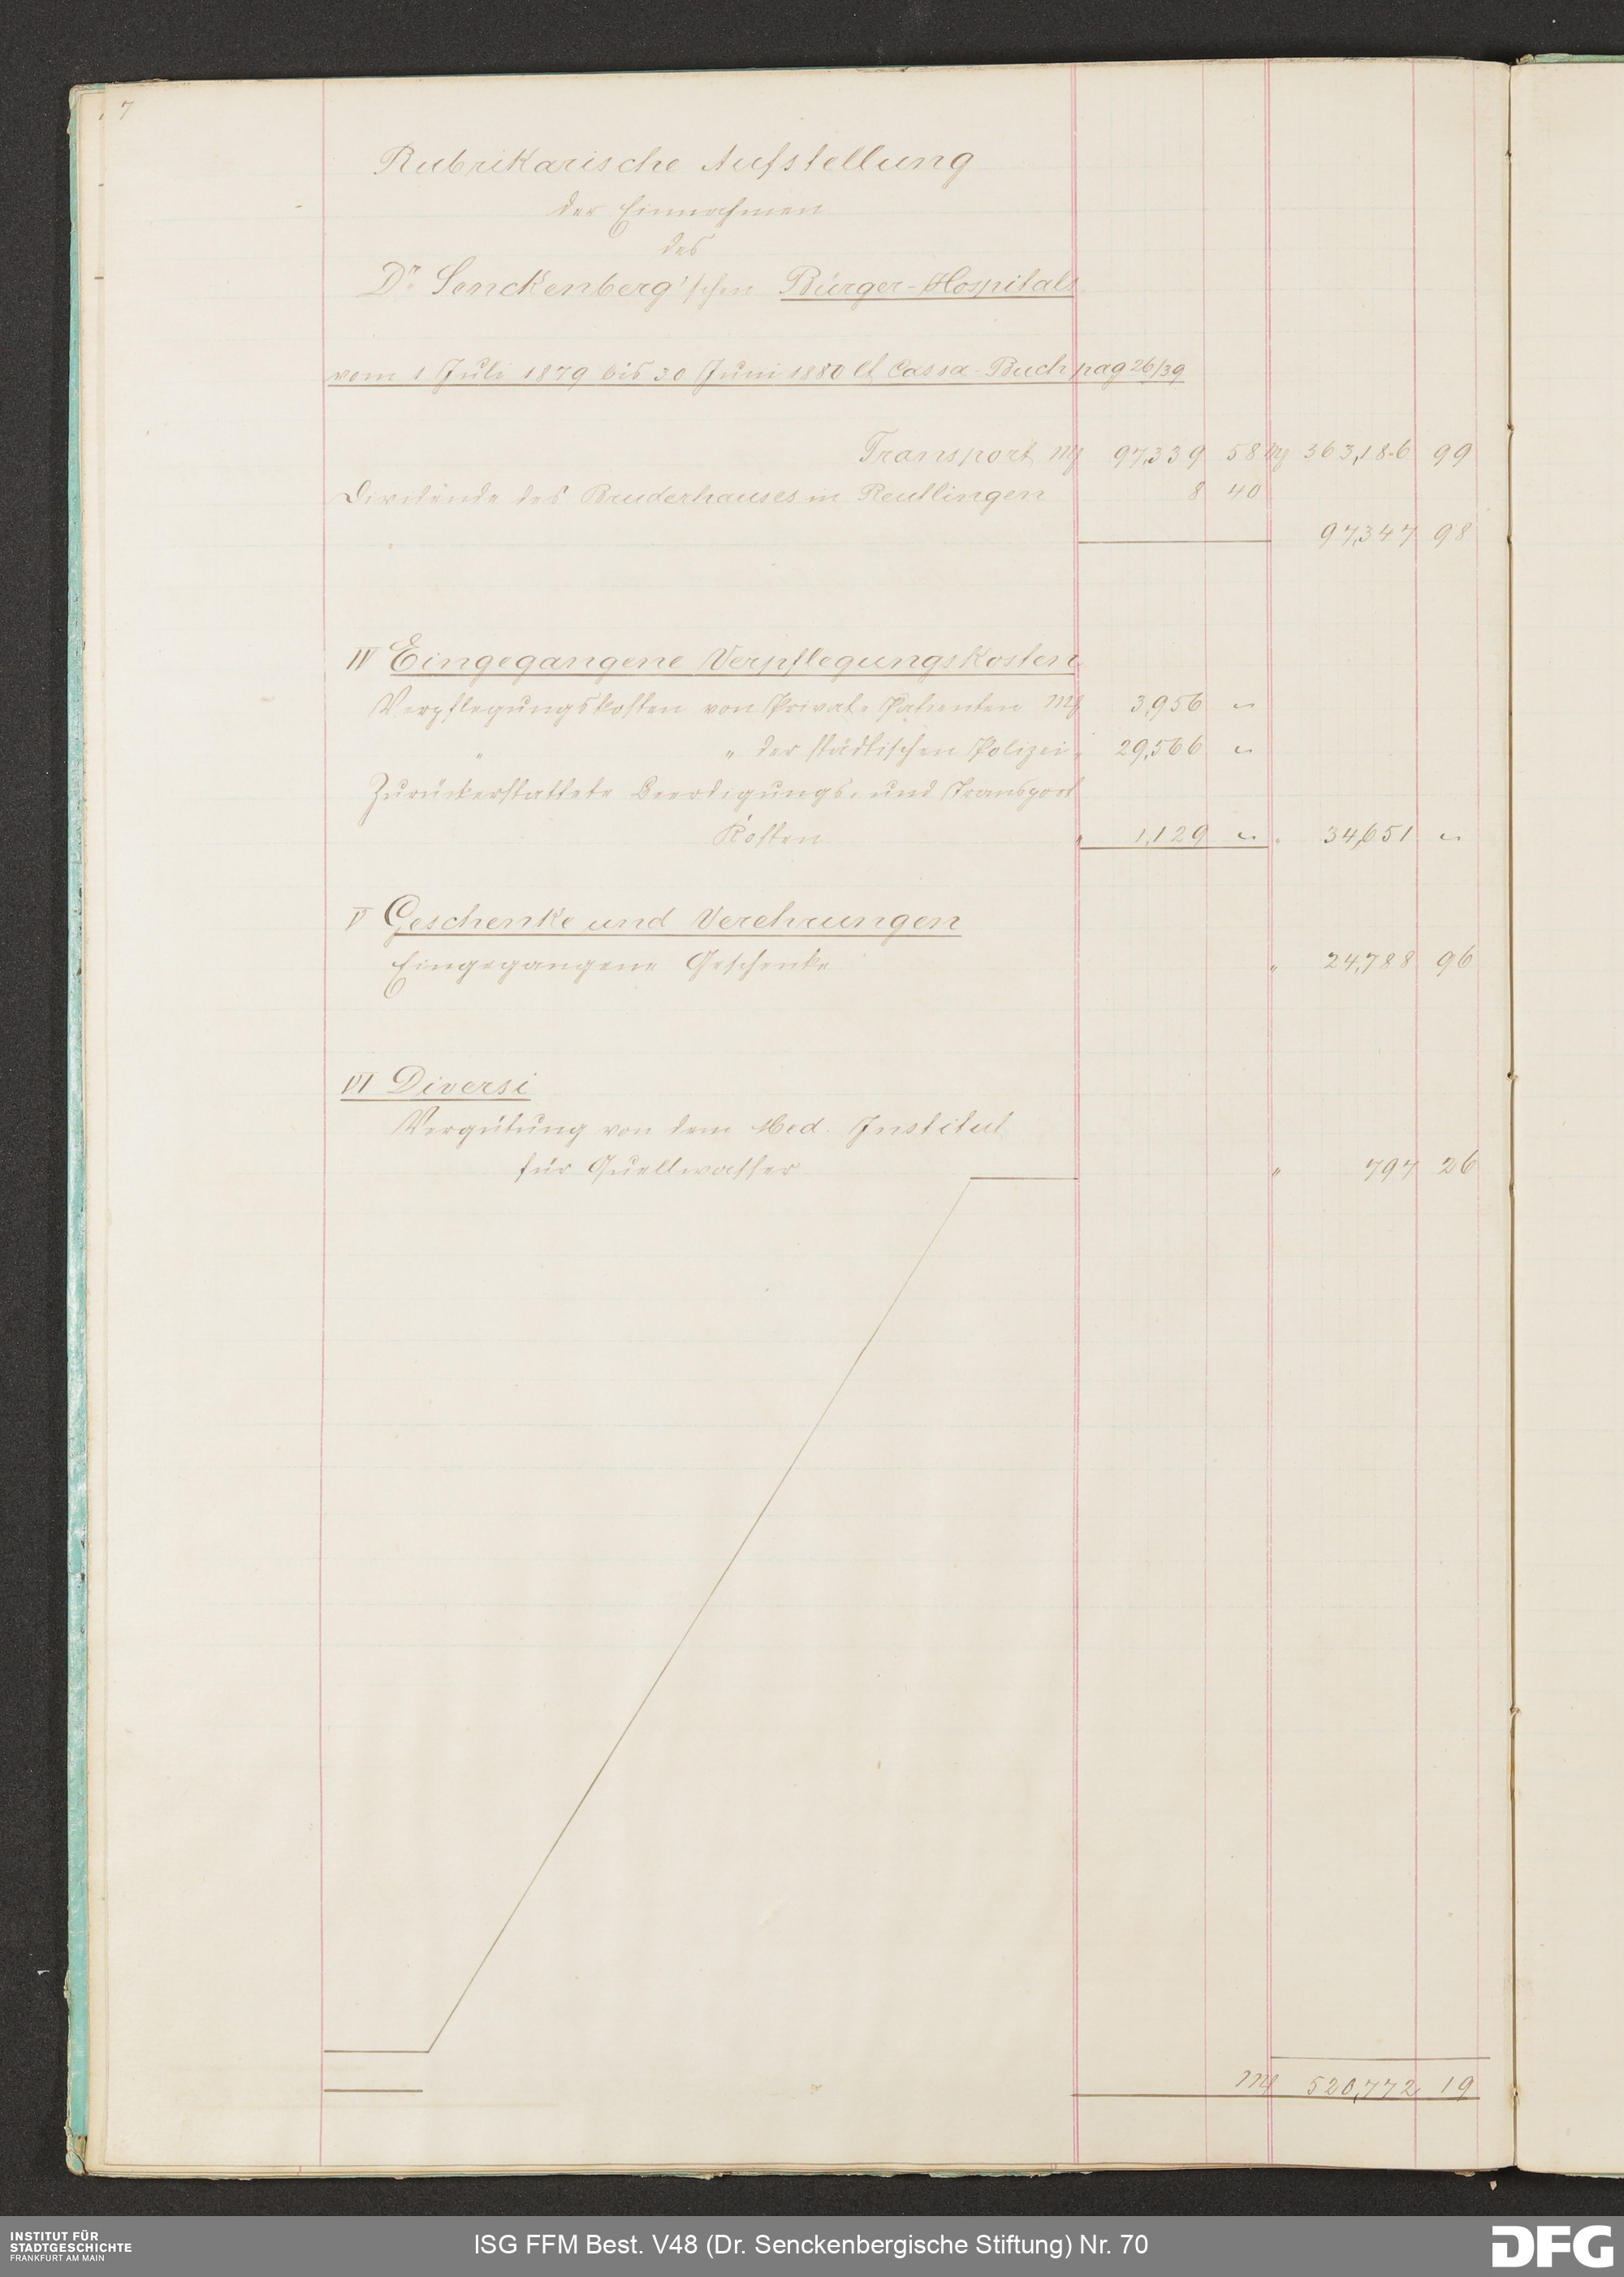 7
Rubrikarische Aufstellung
der Einnahmen
des
Dr. Senckenberg'schen Bürger-Hospitals
vom 1 Juli 1879 bis 30 Juni 1880 lt Cassa-Buch pag 26/39
Transport M 97,339 58 M 363,186 99
Dividende des Bruderhauses in Reutlingen 8 40
97,347 98
IV Eingegangene Verpflegungskosten
Verpflegungskosten von Privat-Patienten M 3,956 "
" " der städtischen Polizei " 29,566 "
Zurückerstattete Beerdigungs- und Transport
Kosten " 1,129 " " 34,651 "
V Geschenke und Verehrungen
Eingegangene Geschenke " 24,788 96
VI Diversi
Vergütung von dem Med. Institut
für Quellwasser " 797 26
M 520,772 19
INSTITUT FÜR
STADTGESCHICHTE
FRANKFURT AM MAIN
ISG FFM Best. V48 (Dr. Senckenbergische Stiftung) Nr. 70
DFG